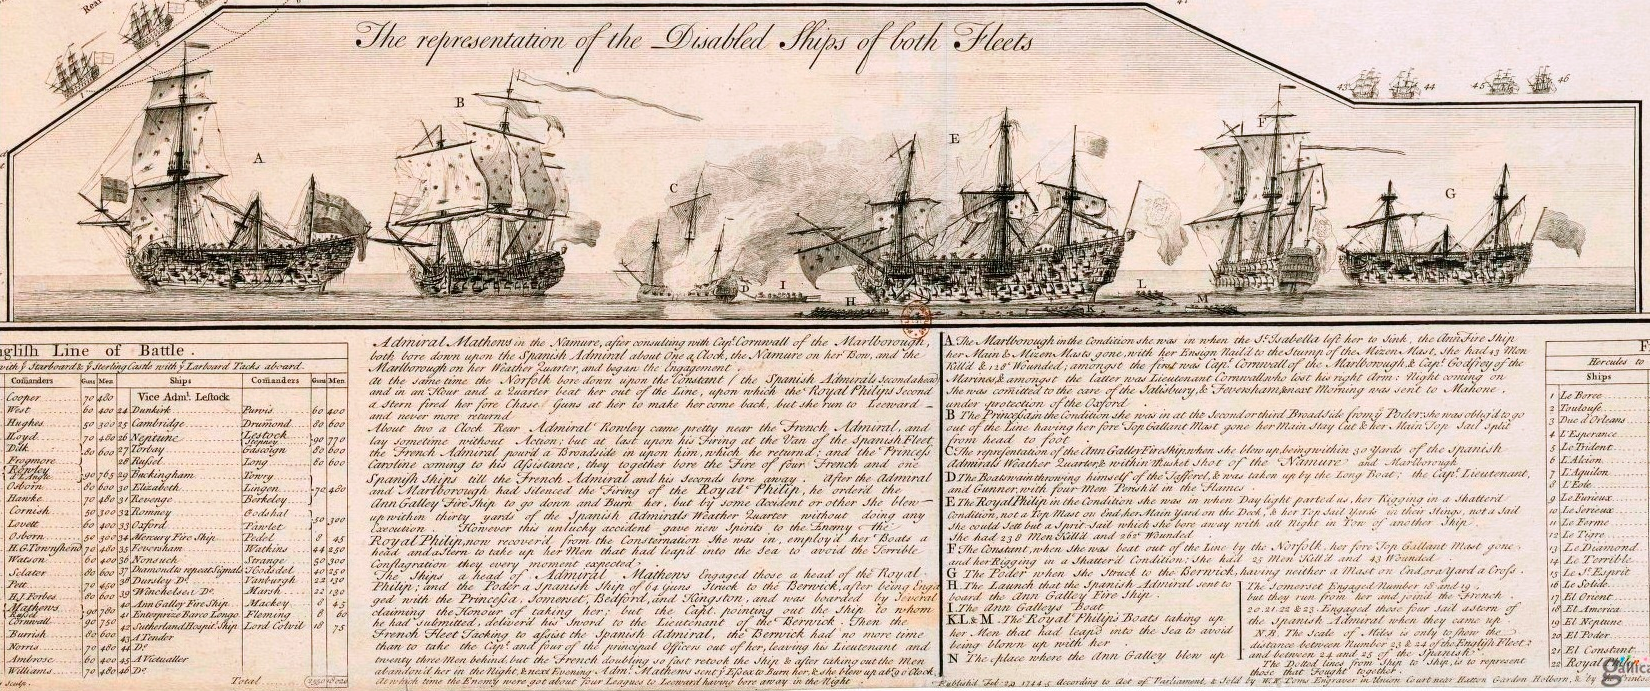 Rear
43
44
45
46
47
The representation of the Disabled Ships of both Fleets
A
B
C
D
E
F
G
H
I
K
L
M
nglish Line of Battle.
with ye Starboard & ye Sterling Castle with ye Larboard Tacks aboard.
Comanders Guns Men Ships Comanders Guns Men
Cooper 70 480 Vice Adml. Lestock
West 60 400 24 Dunkirk Purvis 60 400
Hughes 50 300 25 Cambridge Drumond 80 600
Lloyd 70 480 26 Neptune Lestock Stepney 90 770
Dilk 80 600 27 Torbay Gascoign 80 600
Frogmore 28 Russel Long 80 600
Rowley 90 765 29 Buckingham Towry
Osborn 80 600 30 Elizabeth Lingen 70 480
Hawke 70 480 31 Revenge Berkeley
Cornish 50 300 32 Romney Godshal 50 300
Lovett 60 400 33 Oxford Pawlet
Osborn 50 300 34 Mercury Fire Ship Pedel 8 45
H.G. Townshend 70 480 35 Feversham Watkins 44 250
Watson 60 400 36 Nonsuch Strange 50 300
Sclater 80 600 37 Diamond to repeat Signals Hodsdel 40 250
Pett 70 450 38 Dursley Do. Vanburgh 22 130
H.J. Forbes 80 600 39 Winchelsea Do. Marsh 22 130
Mathews 90 780 40 Ann Galley Fire Ship Mackey 8 45
41 Enterprize Barco Longo Fleming 8 60
Cornwall 90 750 42 Sutherland Hospitl. Ship Lord Colvil 18 75
Burrish 80 600 43 A Tender
Norris 70 480 44 Do.
Ambrose 60 400 45 A Victualler
Williams 70 480 46 Do.
Total
Sculp.
Admiral Mathews in the Namure, after consulting with Capt. Cornwall of the Marlborough,
both bore down upon the Spanish Admiral about One a Clock, the Namure on her Bow, and the
Marlborough on her Weather Quarter, and began the Engagement
At the same time the Norfolk bore down upon the Constant (the Spanish Admirals Second ahead)
and in an Hour and a Quarter beat her out of the Line, upon which the Royal Philips Second
a Stern fired her fore Chase Guns at her to make her come back, but she run to Leeward
and never more returned
About two a Clock Rear Admiral Rowley came pretty near the French Admiral, and
lay sometime without Action; but at last upon his Firing at the Van of the Spanish Fleet,
the French Admiral pour'd a Broadside in upon him, which he return'd; and the Princess
Caroline coming to his Assistance, they together bore the Fire of four French and one
Spanish Ships till the French Admiral and his Seconds bore away. After the Admiral
and Marlborough had Silenced the Firing of the Royal Philip, he order'd the
Ann Galley Fire Ship to go down and Burn her, but by some Accident or other She blew
up within thirty yards of the Spanish Admirals Weather Quarter without doing any
Execution. However this unlucky accident gave new Spirits to the Enemy the
Royal Philip, now recover'd from the Consternation She was in, employ'd her Boats a
head and a Stern to take up her Men that had leap'd into the Sea to avoid the Terrible
Conflagration they every moment expected
The Ships a head of Admiral Mathews Engaged those a head of the Royal
Philip; and the Poder a Spanish Ship of 64 Guns Struck to the Berwick, after being Enga
ged with the Princesa, Somerset, Bedford, and Kingston, and was boarded by Several
claiming the Honour of taking her; but the Capt. pointing out the Ship to whom
he had submitted, deliver'd his Sword to the Lieutenant of the Berwick. Then the
French Fleet Tacking to assist the Spanish Admiral, the Berwick had no more time
than to take the Capt. and four of the principal Officers out of her, leaving his Lieutenant and
twenty three Men behind, but the French doubling so fast retook the Ship & after taking out the Men
abandon'd her in the Night, & next Evening Adml. Mathews sent ye Essex to Burn her, & she blew up abt. 9 o'Clock,
At which time the Enemy were got about four Leagues to Leeward having bore away in the Night
A The Marlborough in the Condition she was in when the St. Isabella left her to Sink, the Ann Fire Ship
her Main & Mizen Masts gone, with her Ensign Nail'd to the Stump of the Mizen Mast, She had 43 Men
Kill'd & 128 Wounded; amongst the first was Capt. Cornwall of the Marlborough, & Capt. Godfrey of the
Marines, & amongst the latter was Lieutenant Cornwall who lost his right Arm: Night coming on
She was comitted to the care of the Salisbury, & Feversham, & next Morning was sent to Mahone,
under protection of the Oxford
B The Princesa in the Condition she was in at the Second or third Broadside from ye Poder: she was oblig'd to go
out of the Line having her fore Top Gallant Mast gone her Main Stay Cut & her Main Top Sail Split
from head to foot
C The representation of the Ann Galley Fire Ship, when she blew up, being within 30 yards of the Spanish
Admirals Weather Quarter & within Musket Shot of the Namure and Marlborough
D The Boatswain throwing himself of the Tafferel, & was taken up by the Long Boat; the Capt. Lieutenant,
and Gunner, with four Men Perish'd in the Flames
E The Royal Philip in the Condition She was in when Day light parted us, her Rigging in a Shatterd
Condition, not a Top Mast on End, her Main Yard on the Deck, & her Top Sail Yards in their Slings, not a Sail
She could Sett but a Sprit Sail which she bore away with all Night in Tow of another Ship
She had 238 Men Kill'd and 262 Wounded
F The Constant, when She was beat out of the Line by the Norfolk, her fore Top Gallant Mast gone
and her Rigging in a Shatterd Condition; She had 25 Men Kill'd and 43 Wounded
G The Poder when She Struck to the Berwick, having neither a Mast on End, or a Yard a Cross
H The Launch that the Spanish Admiral sent to
board the Ann Galley Fire Ship.
I The Ann Galleys Boat
K.L & M. The Royal Philip's Boats taking up
her Men that had leap'd into the Sea to avoid
being blown up with her
N The place where the Ann Galley blew up
The Somerset Engaged Number 18 and 19
but they run from her and joind the French
20.21.22 & 23 Engaged those four Sail astern of
the Spanish Admiral when they came up
N.B. The Scale of Miles is only to show the
distance between Number 23 & 24 of the English Fleet
and between 24 and 25 of the Spanish
The Dotted lines from Ship to Ship, is to represent
those that fought together
Publish'd Feb. 29 1744-5 According to Act of Parliament, & Sold by W.H. Toms Engraver in Union Court near Hatton Garden Holborn, & by
F
Hercules to
Ships
1 Le Boree
2 Toulouse
3 Duc d'Orleans
4 L'Esperance
5 Le Trident
6 L'Alcion
7 L'Aquilon
8 L'Eole
9 Le Furieux
10 Le Serieux
11 Le Ferme
12 Le Tigre
13 Le Diamond
14 Le Terrible
15 Le St. Esprit
16 Le Solide
17 El Orient
18 El America
19 El Neptune
20 El Poder
21 El Constant
22 Royal
gallica